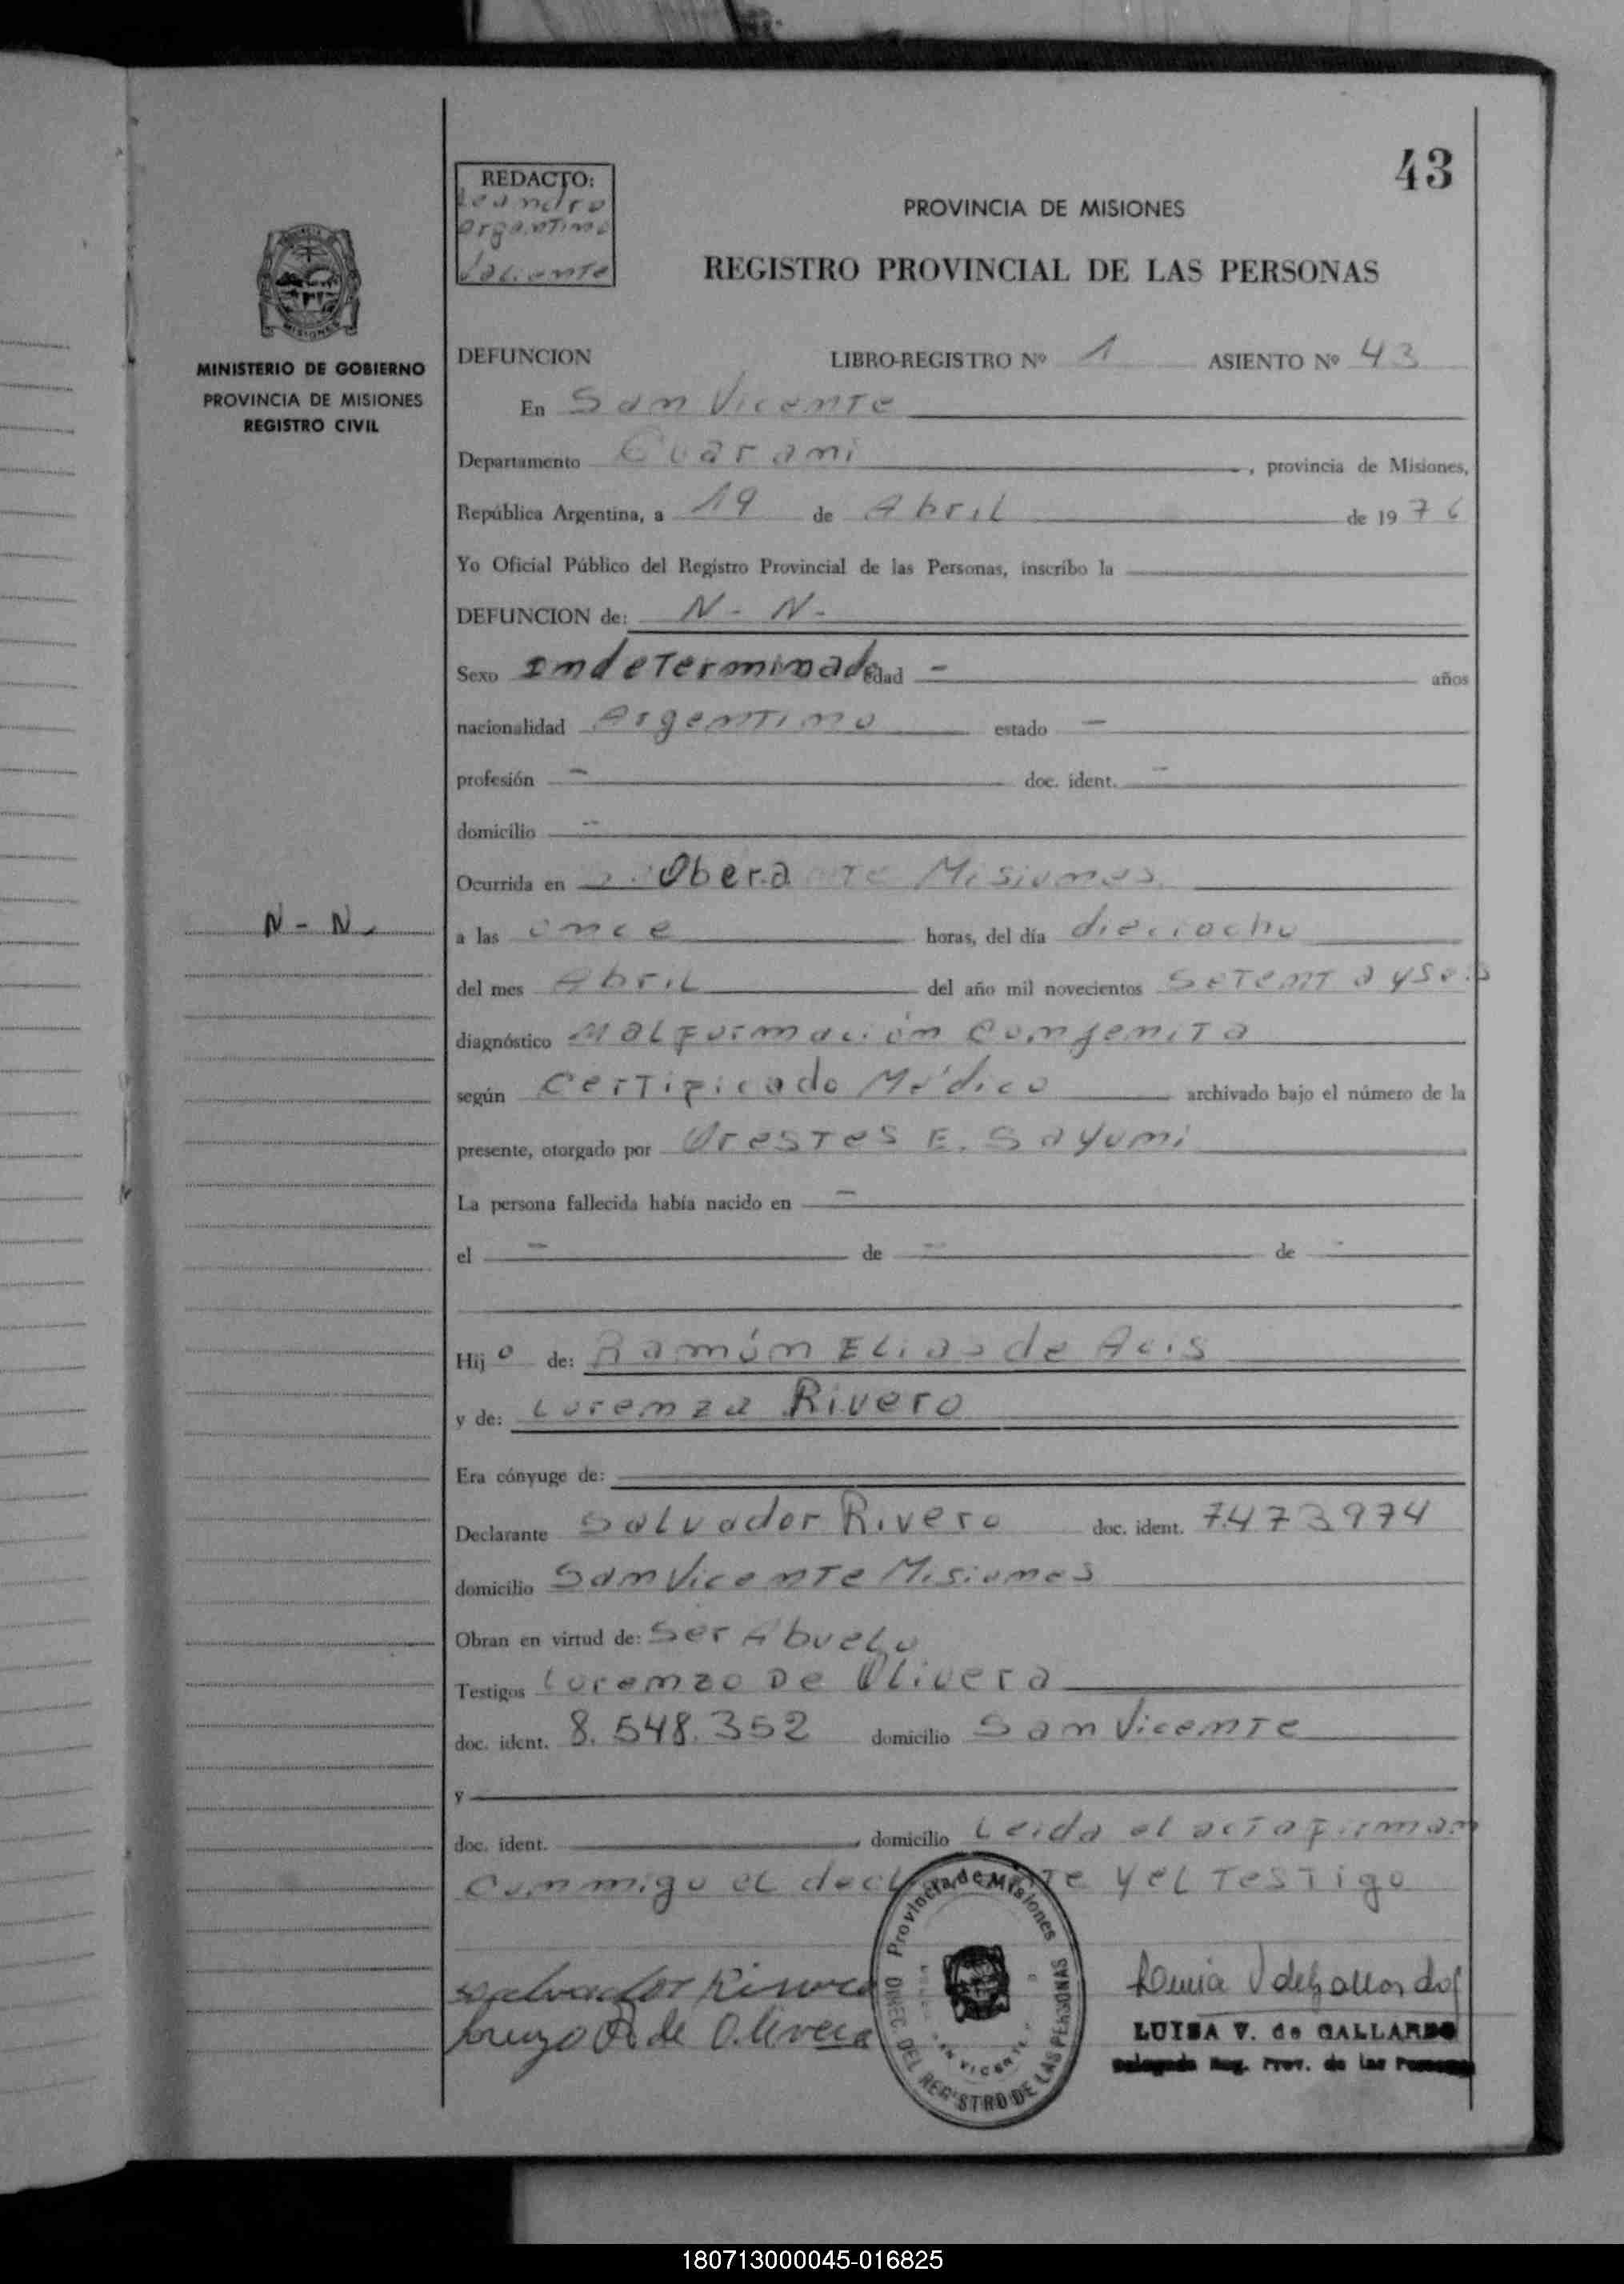 43
REDACTO:
Leandro
Argentino
Valiente
PROVINCIA DE MISIONES
REGISTRO PROVINCIAL DE LAS PERSONAS
MISIONES
MINISTERIO DE GOBIERNO
PROVINCIA DE MISIONES
REGISTRO CIVIL
DEFUNCION LIBRO-REGISTRO Nº 1 ASIENTO Nº 43
En San Vicente
Departamento Guarani, provincia de Misiones,
República Argentina, a 19 de Abril de 1976
Yo Oficial Público del Registro Provincial de las Personas, inscribo la
DEFUNCION de: N - N -
Sexo indeterminado edad - años
nacionalidad Argentino estado -
profesión - doc. ident. -
domicilio -
Ocurrida en Obera Misiones
N - N.
a las once horas, del día dieciocho
del mes Abril del año mil novecientos Setenta y seis
diagnóstico Malformación Congenita
según Certificado Médico archivado bajo el número de la
presente, otorgado por Orestes E. Sayumi
La persona fallecida había nacido en -
el - de - de -
Hijo de: Ramón Elias de Acis
y de: Lorenza Rivero
Era cónyuge de:
Declarante Salvador Rivero doc. ident. 7.473974
domicilio San Vicente Misiones
Obran en virtud de: Ser Abuelo
Testigos Lorenzo De Olivera
doc. ident. 8.548.352 domicilio San Vicente
y
doc. ident. , domicilio Leida el acta firman
conmigo el declarante y el Testigo
Provincia de Misiones
DIREC. DEL REGISTRO DE LAS PERSONAS
Salvador Rivero
Lorenzo R de Olivera
LUISA V. de GALLARDO
Delegada Reg. Prov. de las Personas
180713000045-016825